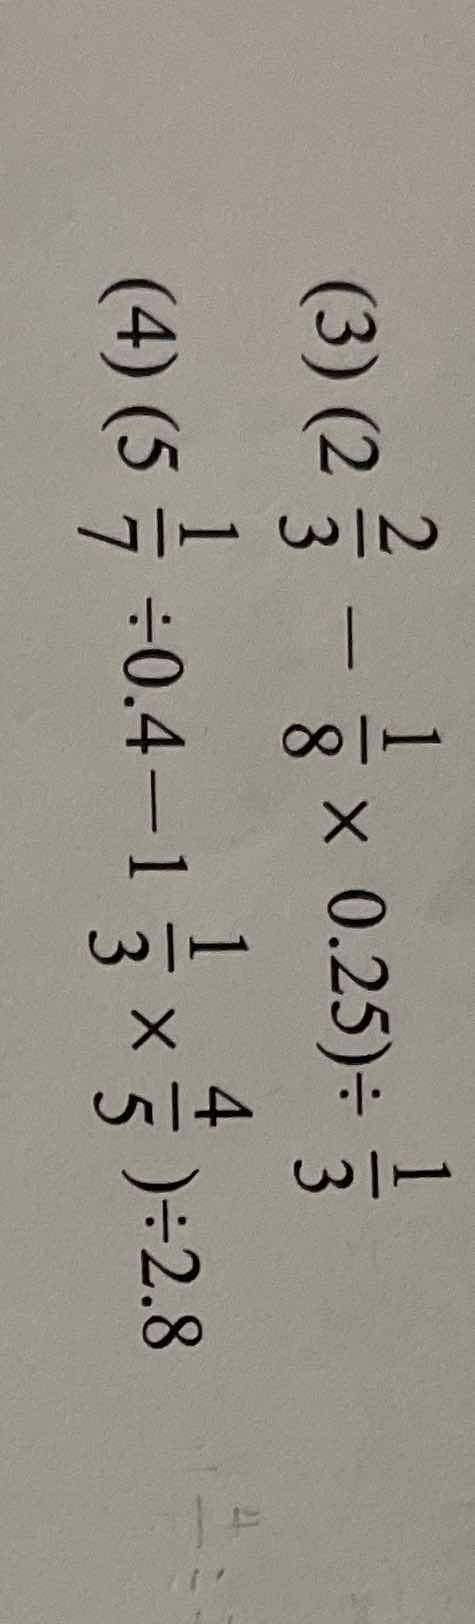 (3) (2 2/3 － 1/8 × 0.25)÷ 1/3
(4) (5 1/7 ÷0.4－1 1/3 × 4/5 )÷2.8